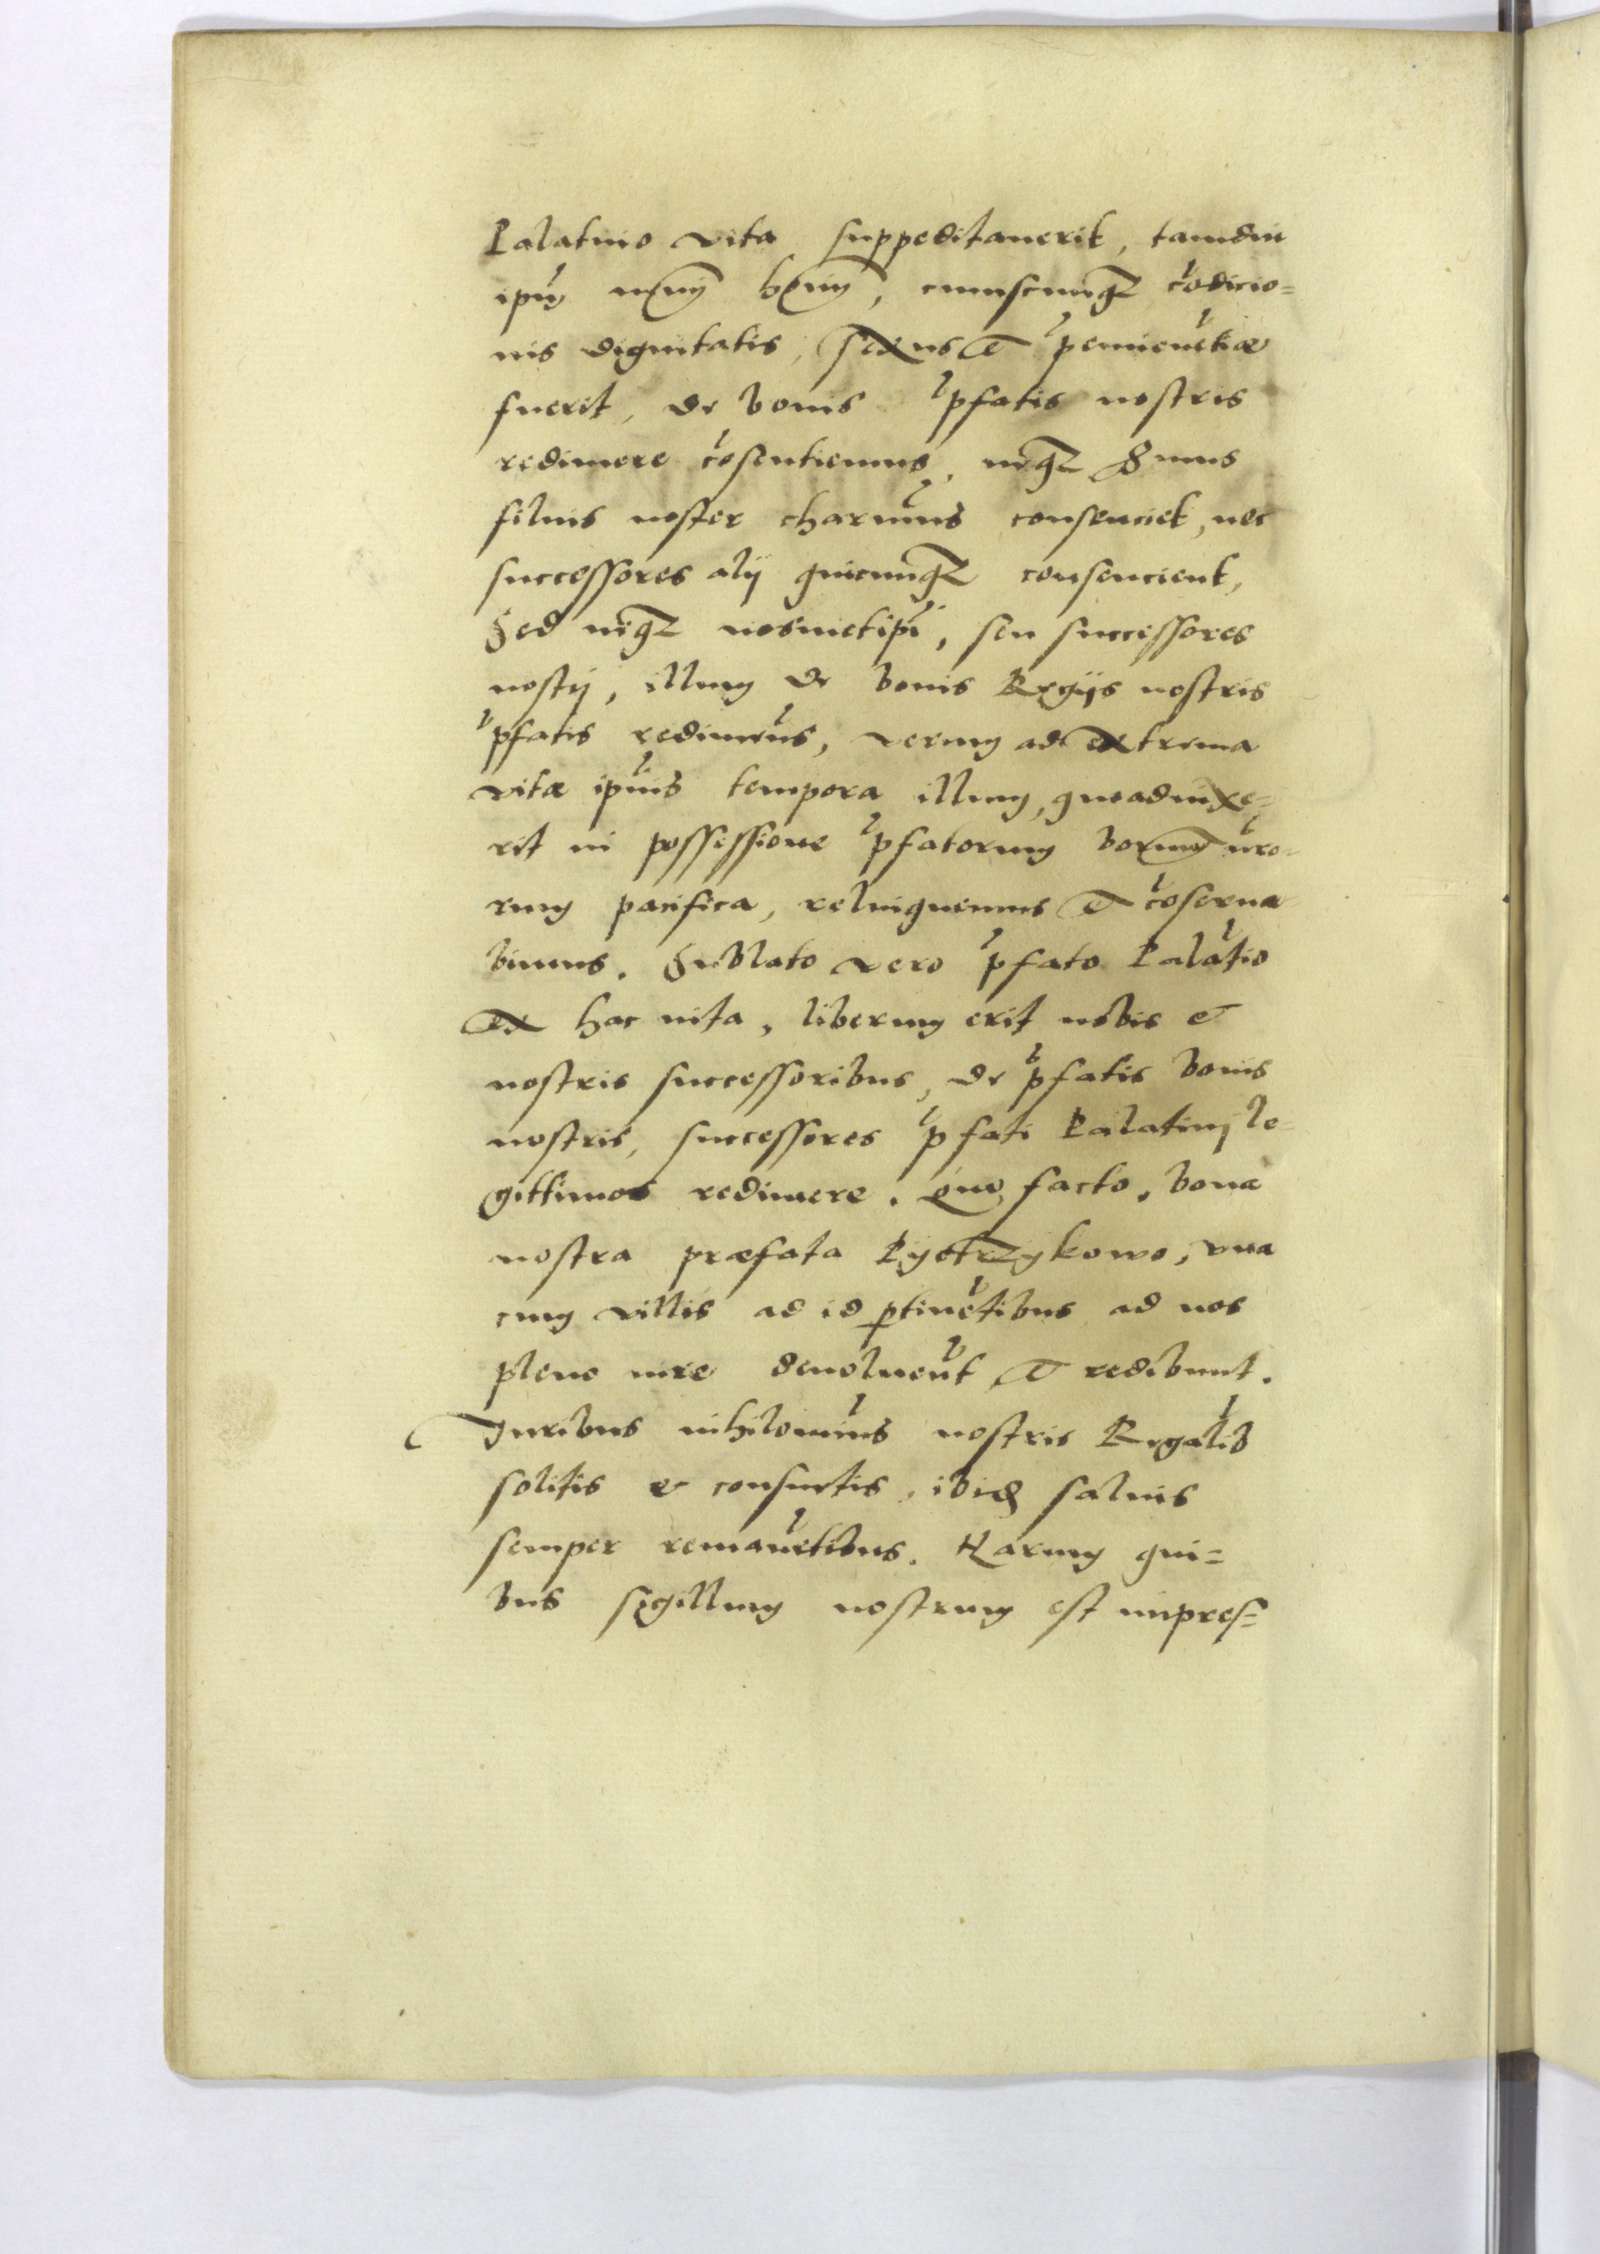 Palatino vita suppeditauerit, tamdiu
ipm̃ cuiuscunqz cõdicio=
nis dignitatis, sexus et p̃eminẽtiæ
fuerit, de bonis p̃fatis nostris
redimere cõsentiemus, neqz Smus
filius noster charimũs consenciet, nec
successores alij quicunqz consencient,
Sed neqz nosmetip̃i, seu successores
nostrj, illum de bonis Regijs nostris
p̃fatis redimem̃us, verum ad extrema
vitæ ip̃ius tempora illum, quoad uixe=
rit in possessione p̃fatorum bonorum nr̃o=
rum pacifica, relinquemus et cõserua=
bimus. Sublato vero p̃fato Palatĩo
ex hac uita, liberum erit nobis et
nostris successoribus, de p̃fatis bonis
nostris, successores p̃fati Palatinj le=
gittimos redimere. Quo facto, bona
nostra præfata Pyetrzykowo, vna
cum villis ad id ptinẽtibus ad nos
pleno iure deuoluẽt et redibunt.
Iuribus nihilomĩus nostris Regalib
solitis et consuetis, ibid saluis
semper remanẽtibus. Harum qui=
bus sigillum nostrum est impres=